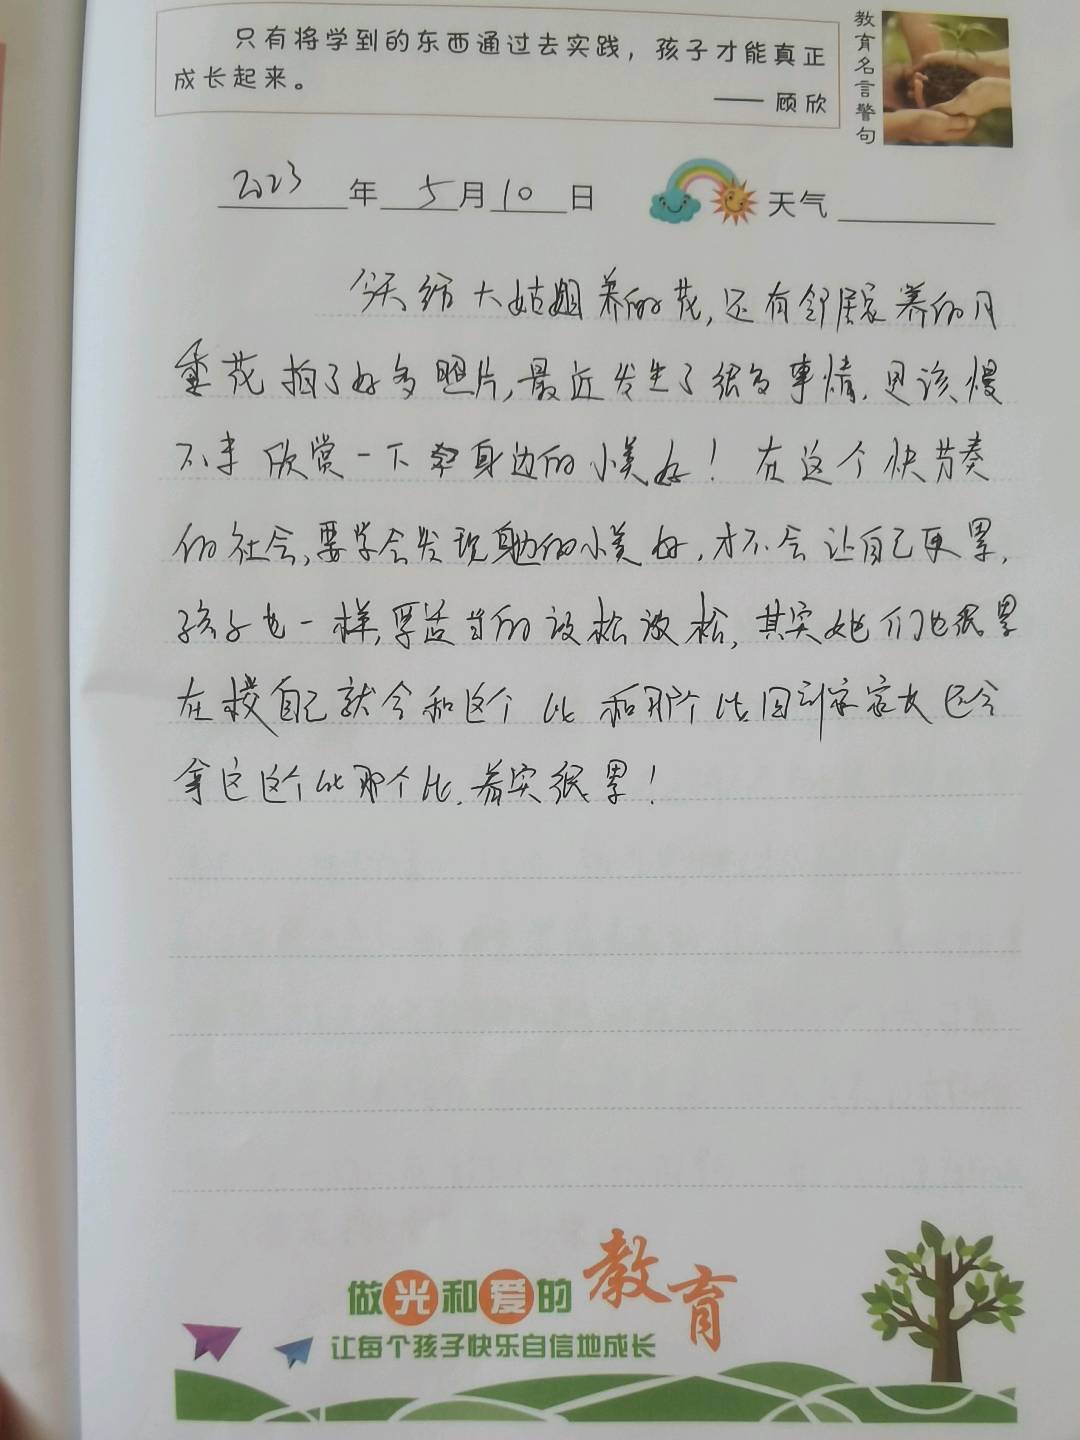 只有将学到的东西通过去实践，孩子才能真正
成长起来。
—— 顾欣
教育名言警句
2023年 5月10日 天气
今天给大姑姐养的花，还有邻居家养的月
季花拍了好多照片，最近发生了很多事情，是该慢
下来欣赏一下身边的小美好！在这个快节奏
的社会，要学会发现身边的小美好，才不会让自己更累，
孩子也一样，要适当的放松放松，其实她们也很累
在校自己就会和这个比和那个比，回到家家长还会
拿这个比那个比，着实很累！
做光和爱的教育
让每个孩子快乐自信地成长